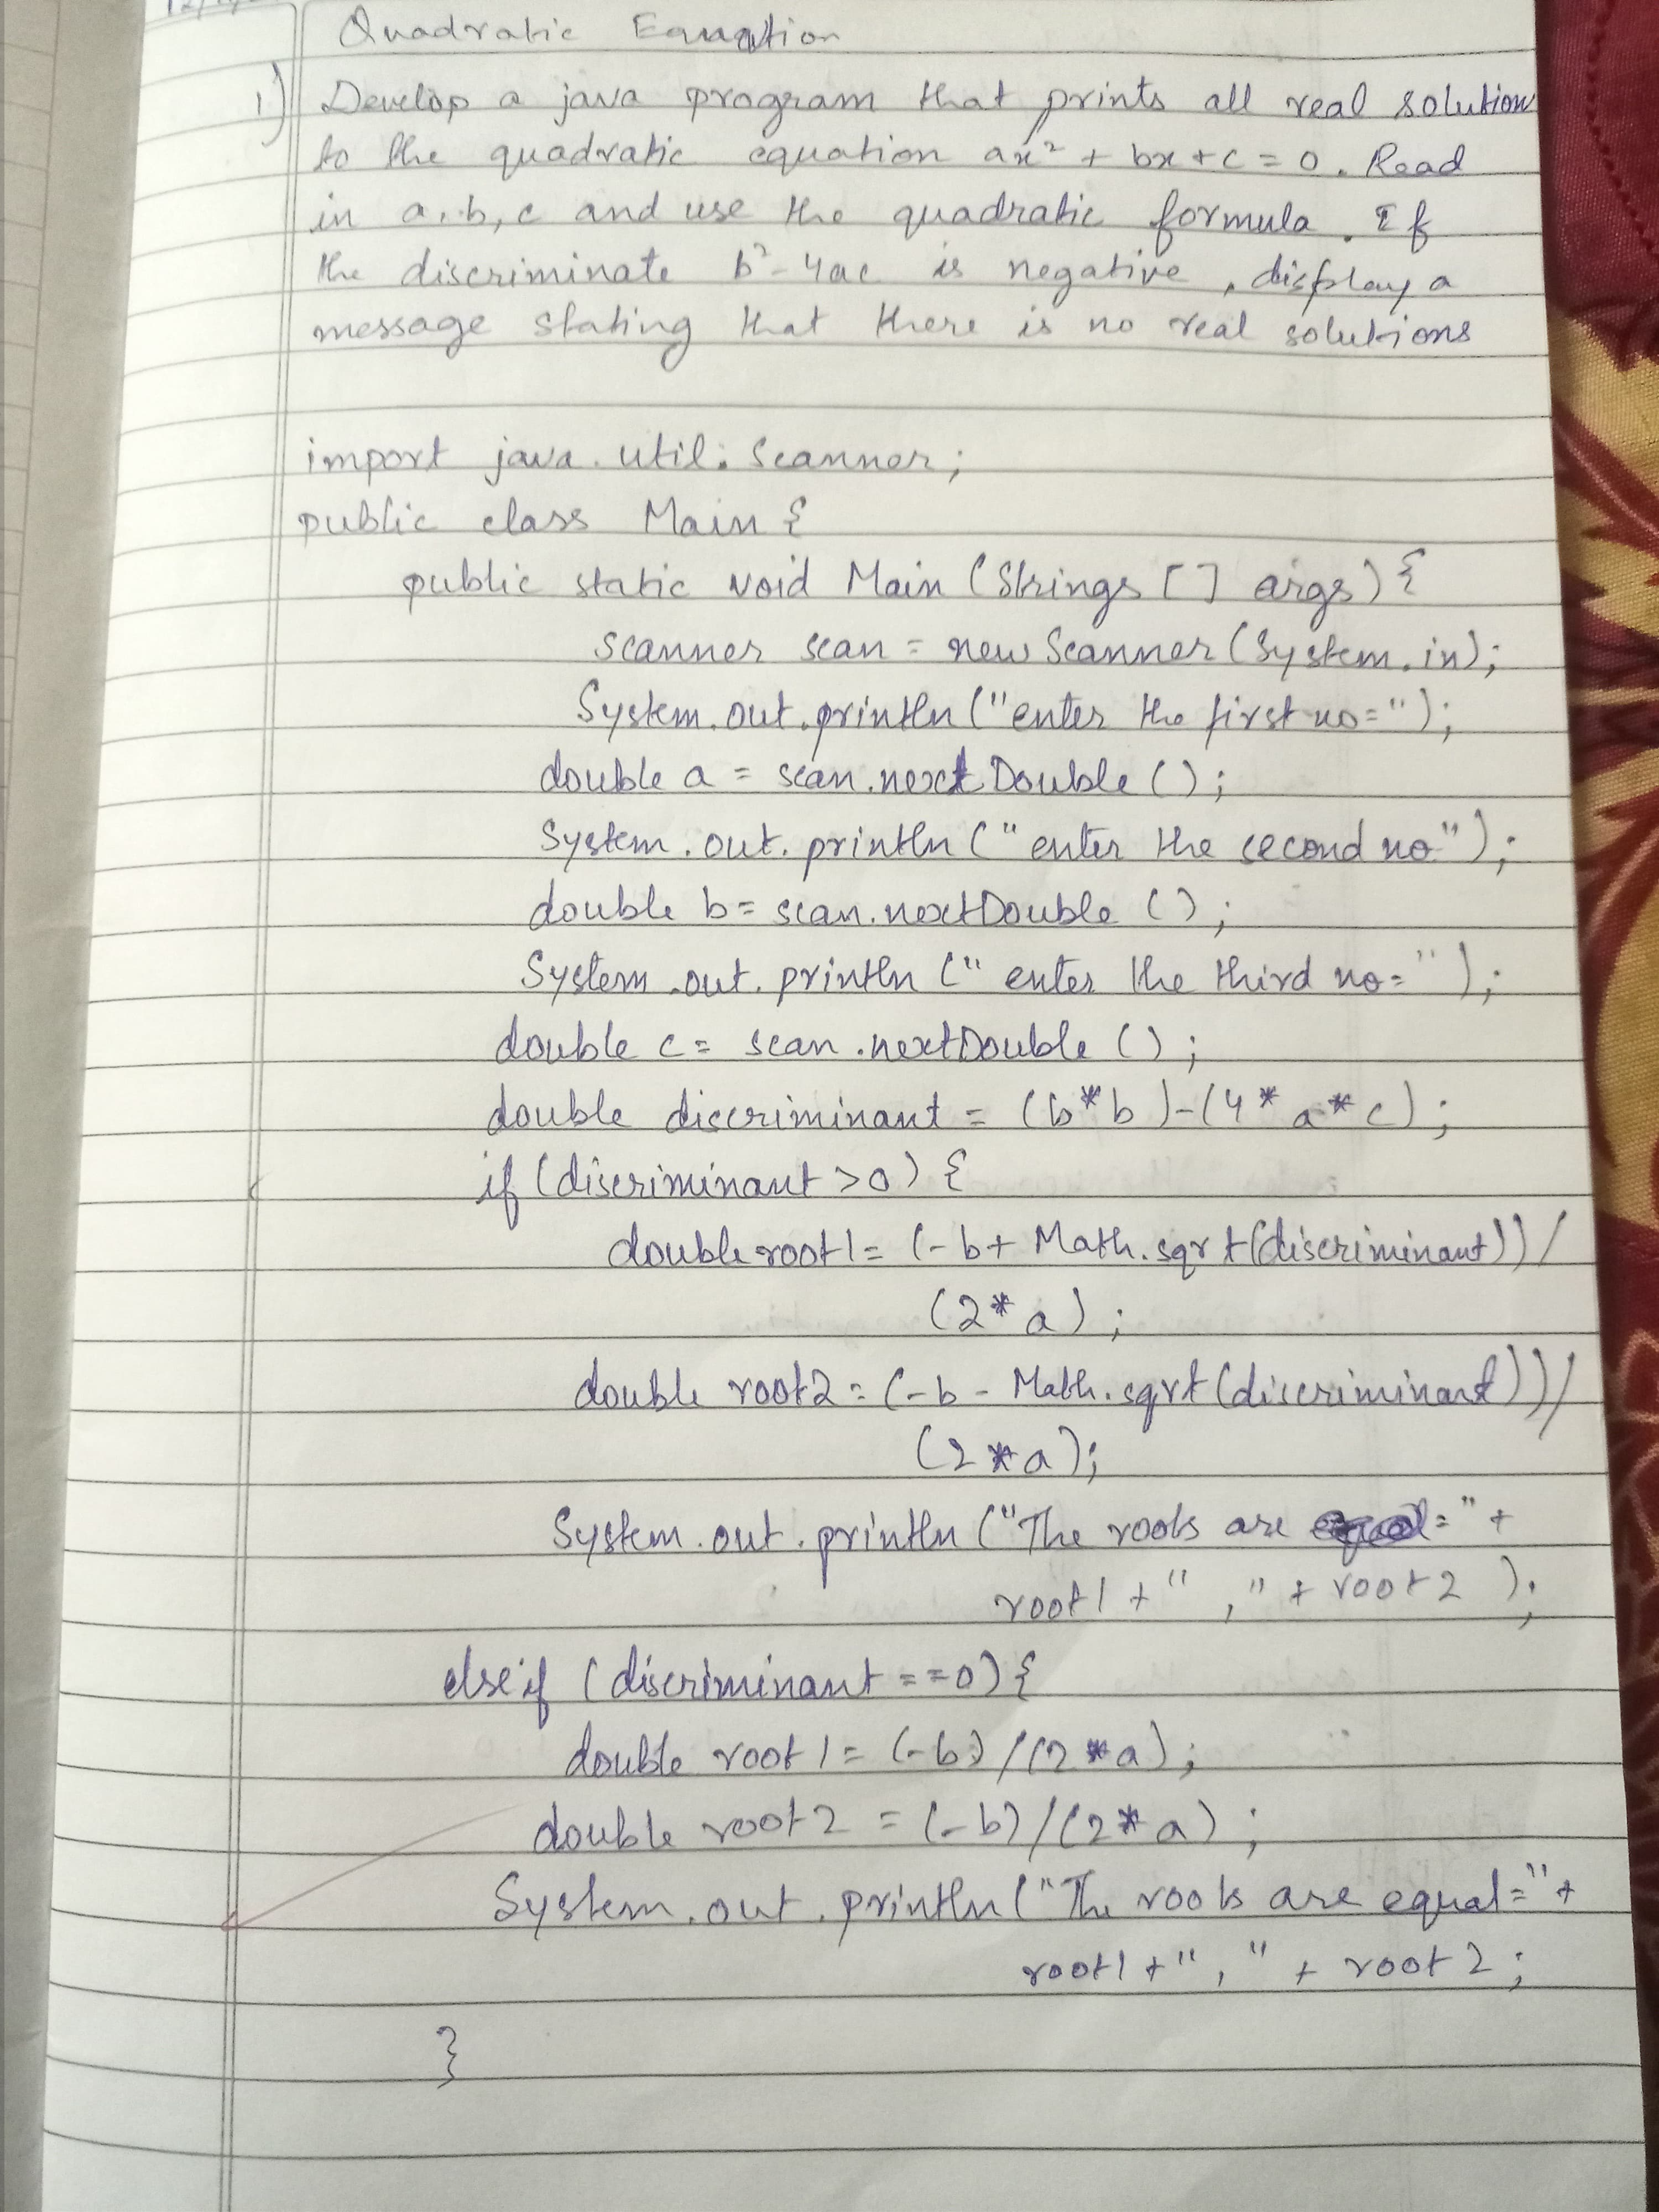 Quadratic Equation
1) Develop a java program that prints all real solution
to the quadratic equation ax² + bx + c = 0. Read
in a, b, c and use the quadratic formula. If
the discriminate b² - 4ac is negative, display a
message stating that there is no real solutions
import java.util.Scanner;
public class Main {
public static void Main (Strings [ ] args) {
scanner scan = new Scanner (System.in);
System.out.println ("enter the first no=");
double a = scan.nextDouble ( );
System.out.println ("enter the second no");
double b = scan.nextDouble ( );
System.out.println (" enter the third no=");
double c = scan.nextDouble ( );
double discriminant = (b*b)-(4*a*c);
if (discriminant >0) {
double root1 = (-b+ Math.sqrt(discriminant))/
(2*a);
double root2 = (-b - Math.sqrt (discriminant))/
(2*a);
System.out.println ("The roots are ="+
root1 + " ," + root2 );
else if (discriminant ==0) {
double root1 = (-b)/(2*a);
double root2 = (-b)/(2*a);
System.out.println ("The roots are equal="+
root1 + " , " + root2 ;
}